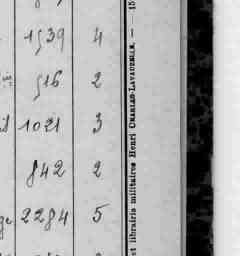 1539 4
516 2
1021 3
842 2
2284 5
et librairie militaires Henri CHARLES-LAVAUZELLE. — 15